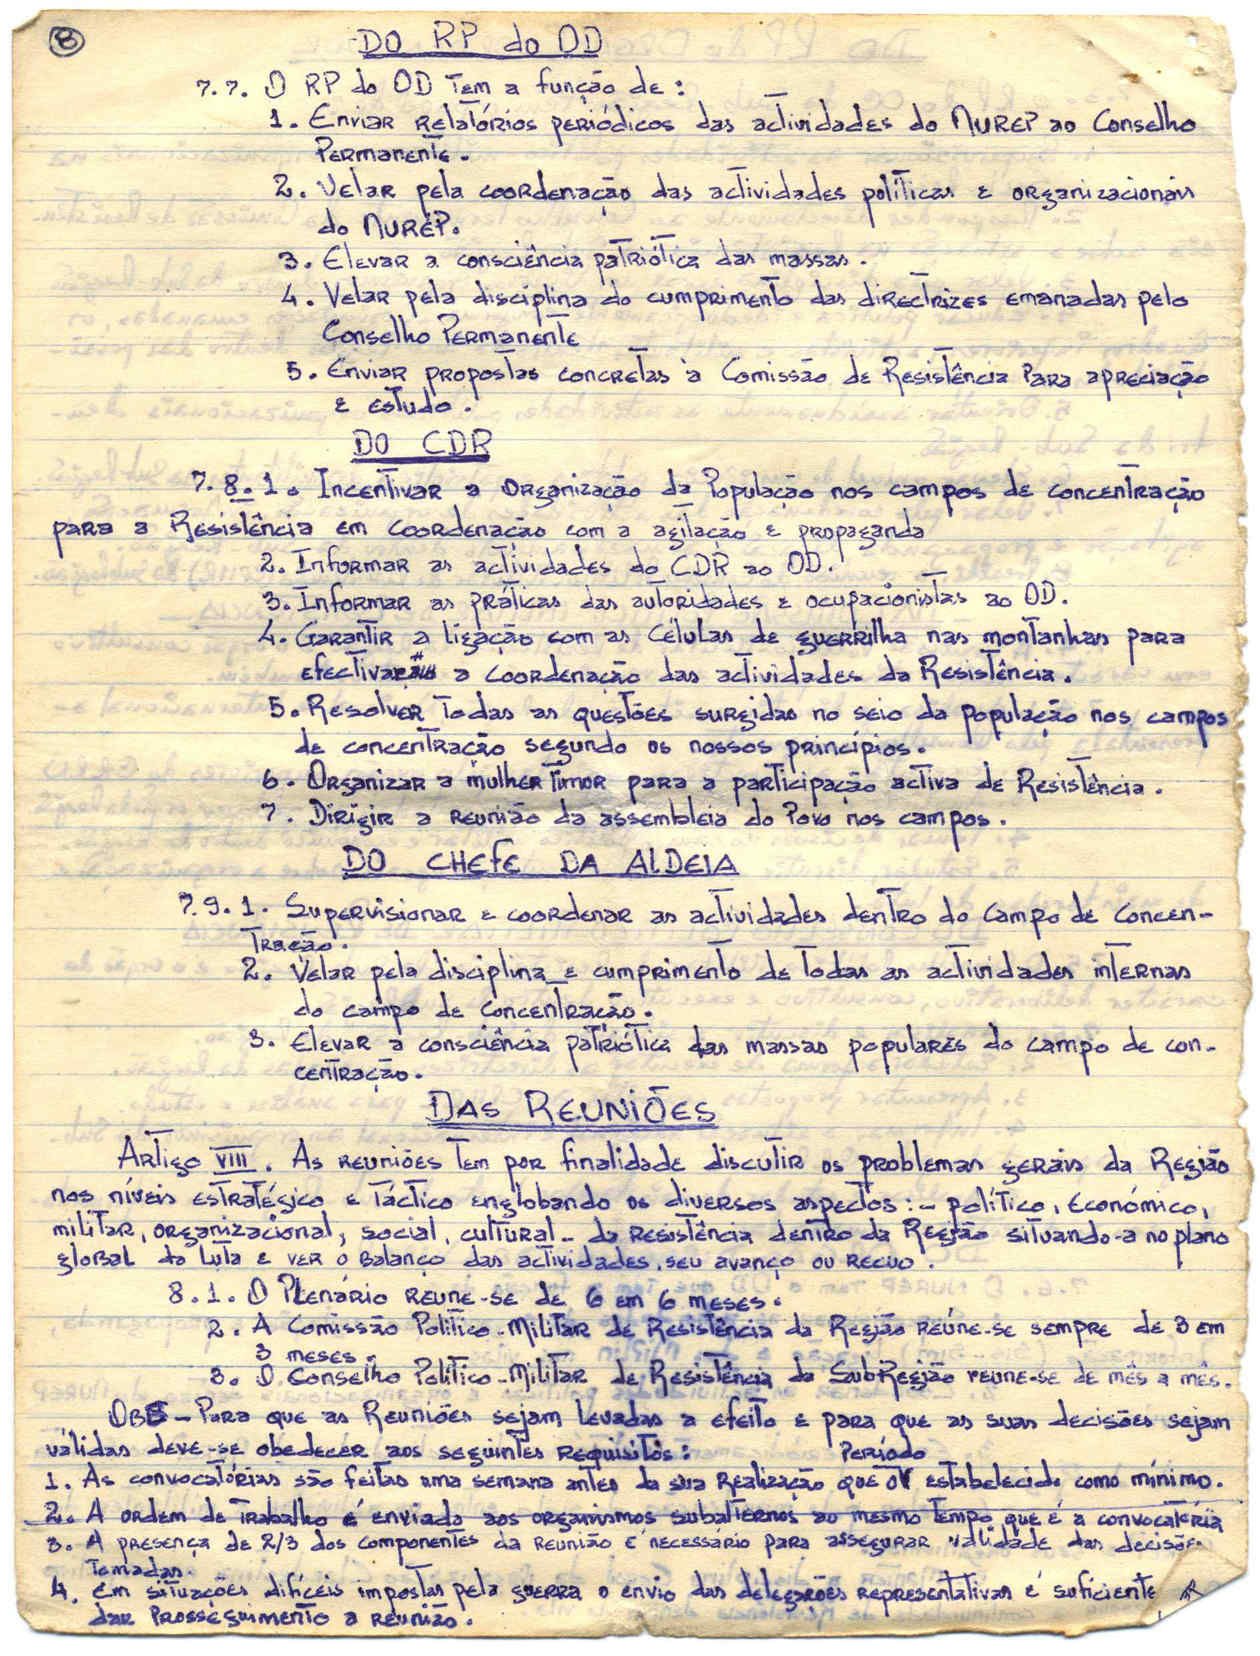 8
DO RP do OD
7.7. O RP do OD Tem a função de :
1. Enviar relatórios periódicos das actividades do NUREP ao Conselho
Permanente.
2. Velar pela coordenação das actividades políticas e organizacionais
do NUREP.
3. Elevar a consciência patriótica das massas.
4. Velar pela disciplina do cumprimento das directrizes emanadas pelo
Conselho Permanente
5. Enviar propostas concretas à Comissão de Resistência Para apreciação
e estudo.
DO CDR
7.8.1. Incentivar a Organização da População nos campos de concentração
para a Resistência em coordenação com a agitação e propaganda
2. Informar as actividades do CDR ao OD.
3. Informar as práticas das autoridades e ocupacionistas ao OD.
4. Garantir a ligação com as Células de guerrilha nas montanhas para
efectivar a coordenação das actividades da Resistência.
5. Resolver Todas as questões surgidas no seio da população nos campos
de concentração segundo os nossos princípios.
6. Organizar a mulher Timor para a participação activa de Resistência.
7. Dirigir a reunião da assembleia do Povo nos campos.
DO CHEFE DA ALDEIA
7.9.1. Supervisionar e coordenar as actividades dentro do Campo de Concen-
Tração.
2. Velar pela disciplina e cumprimento de Todas as actividades internas
do campo de concentração.
3. Elevar a consciência patriótica das massas populares do campo de con-
centração.
DAS REUNIÕES
Artigo VIII. As reuniões Tem por finalidade discutir os problemas gerais da Região
nos níveis estratégico e Táctico englobando os diversos aspectos: - político, Económico,
militar, organizacional, social, cultural - da resistência dentro da Região situando-a no plano
global da Luta e ver o balanço das actividades, seu avanço ou recuo.
8.1. O Plenário reune-se de 6 em 6 meses.
2. A Comissão Político-Militar de Resistência da Região reúne-se sempre de 3 em
3 meses.
3. O Conselho Político-Militar de Resistência da SubRegião reune-se de mês a mês.
OBS - Para que as Reuniões sejam levadas a efeito e para que as suas decisões sejam
válidas deve-se obedecer aos seguintes requisitos:
Período
1. As convocatórias são feitas uma semana antes da sua Realização que é estabelecido como mínimo.
2. A ordem de Trabalho é enviada aos organismos subalternos ao mesmo Tempo que é a convocatória
3. A presença de 2/3 dos componentes da reunião é necessário para assegurar validade das decisões
Tomadas.
4. Em situações difíceis impostas pela guerra o envio das delegações representativas é suficiente
dar prosseguimento a reunião.